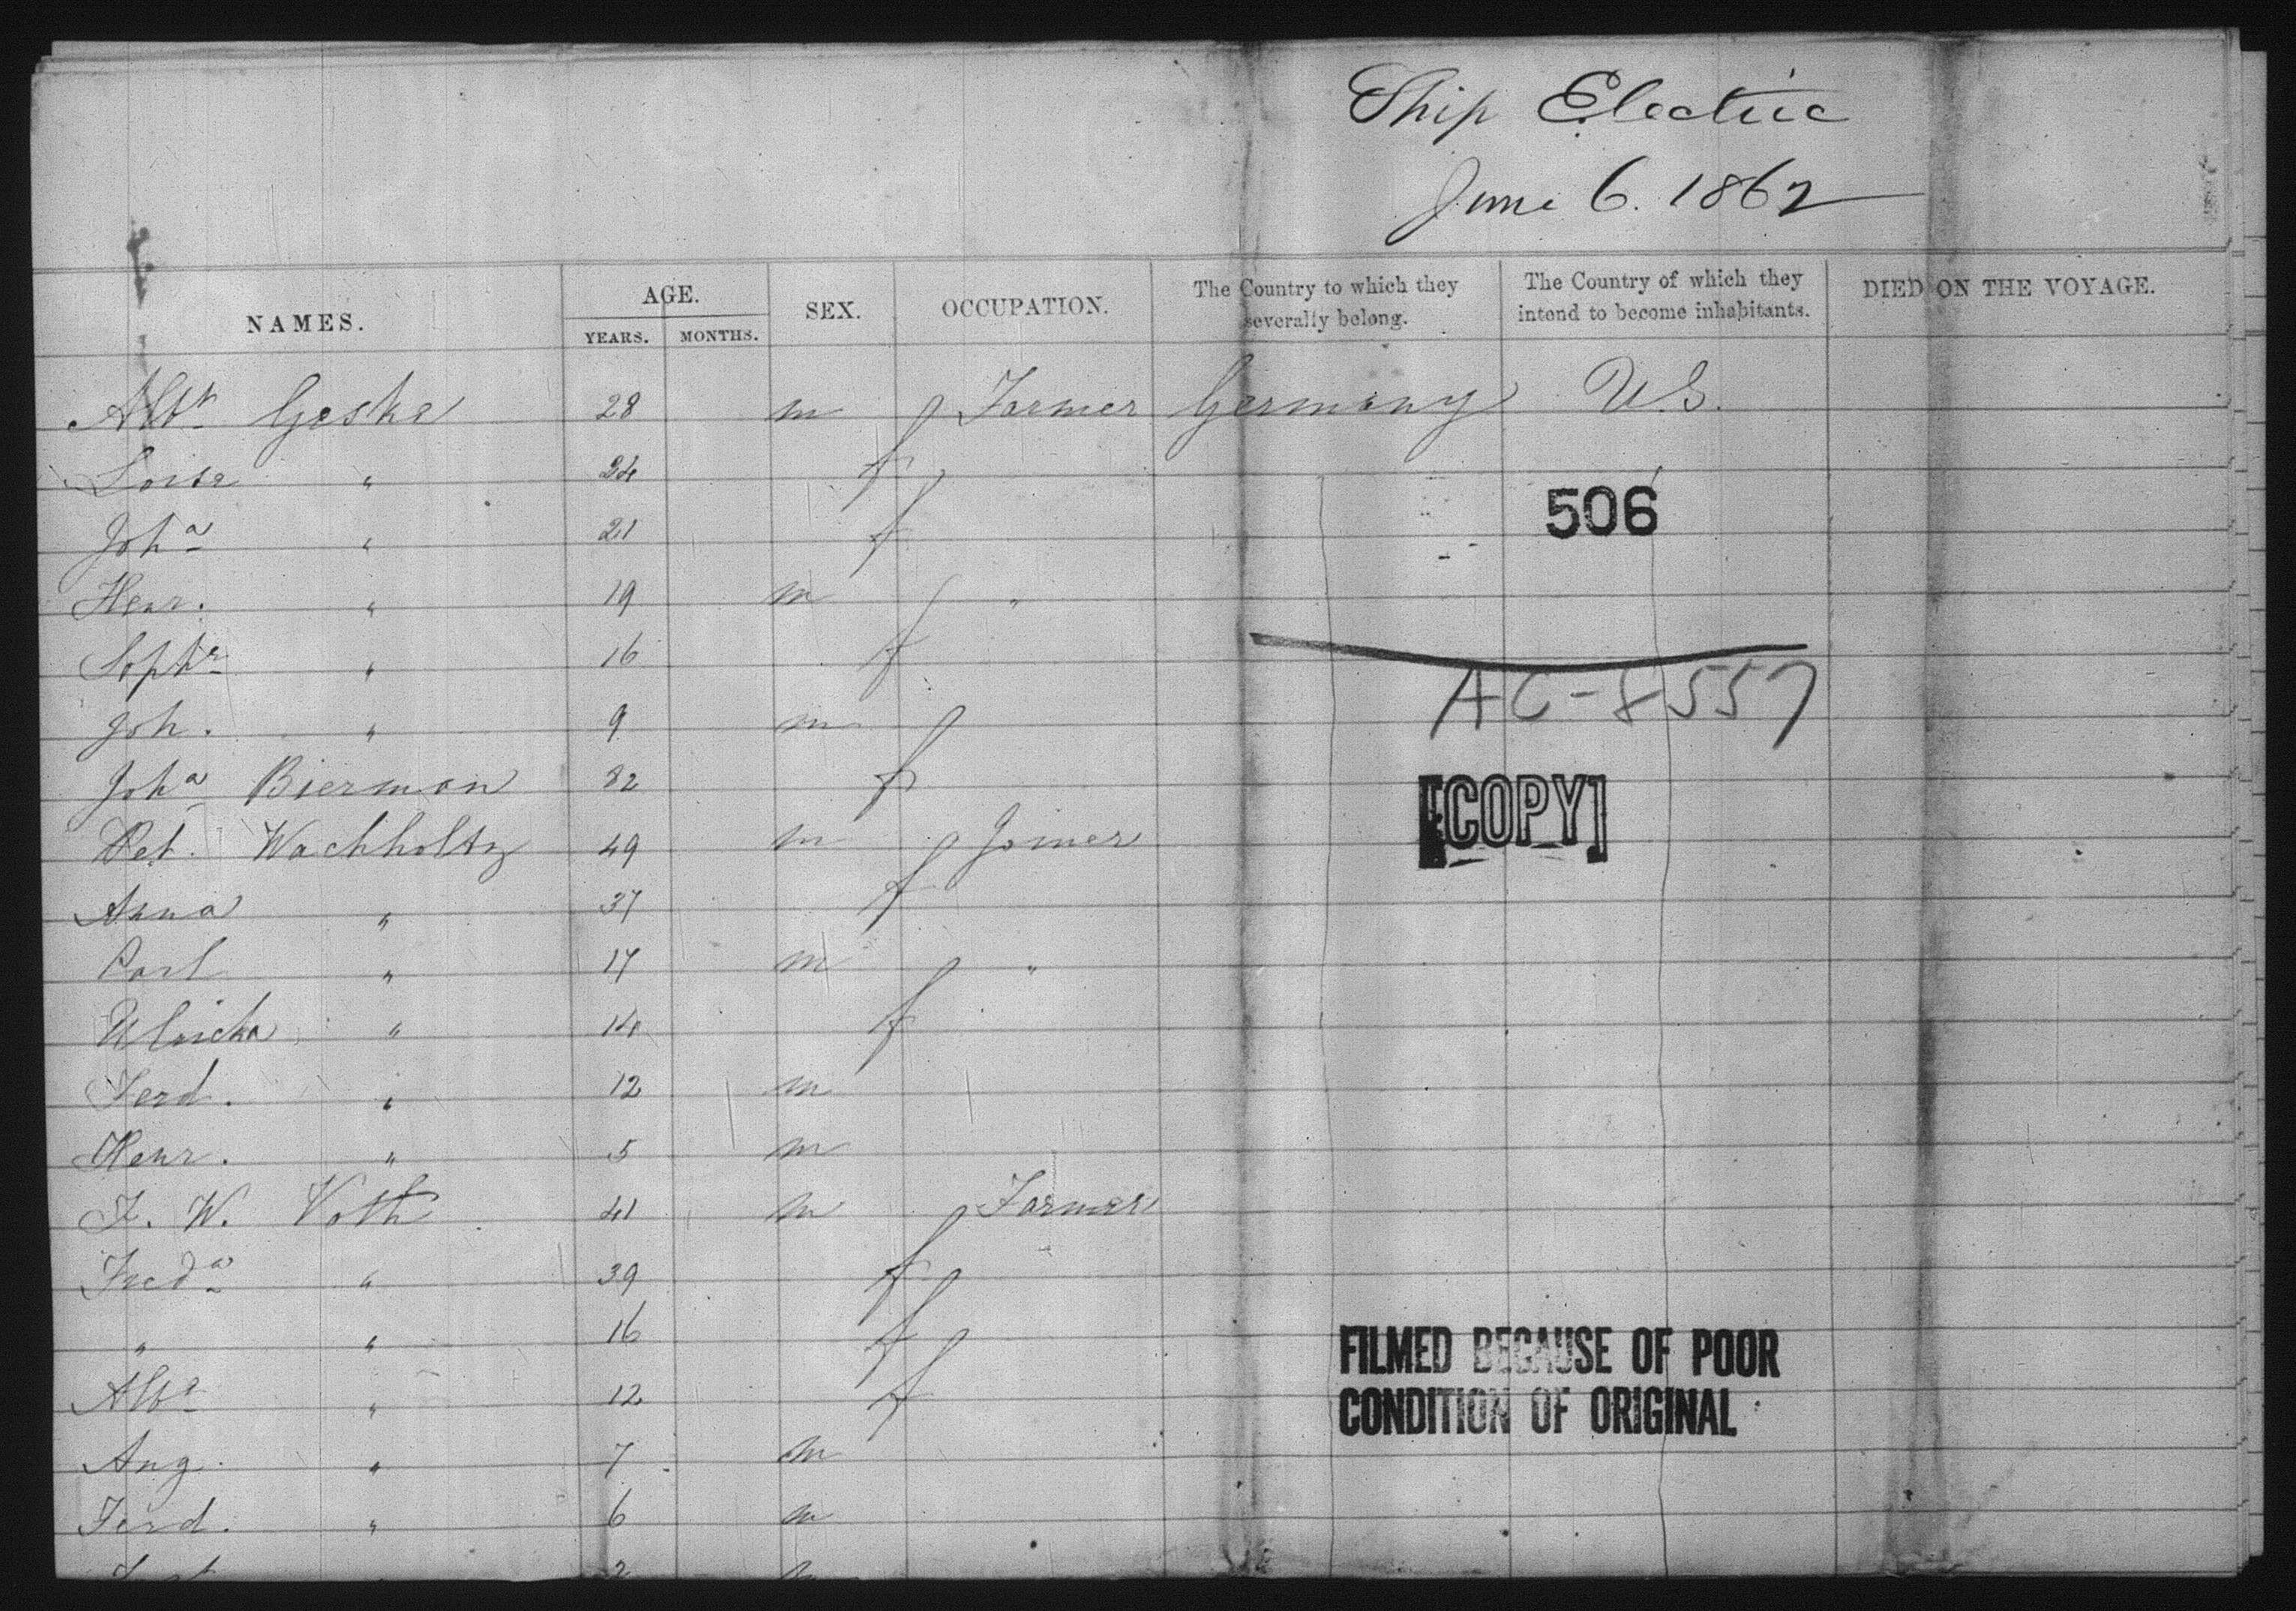 Ship Electric
June 6. 1862
NAMES. AGE. YEARS. MONTHS. SEX. OCCUPATION. The Country to which they severally belong. The Country of which they intend to become inhabitants. DIED ON THE VOYAGE.
Albt Geske 28 m Farmer Germany U.S.
Loisa " 24 f
506
Joha " 21 f
Henr. " 19 m "
Sopha " 16 f
AC-8557
Joh. " 9 m
Joha Bierman 32 f
[COPY]
Pet. Wachholtz 49 m Joiner
Anna " 37 f
Carl " 17 m "
Ulricka " 14 f
Ferd. " 12 m
Henr. " 5 m
F. W. Voth 41 m Farmer
Freda " 39 f
" " 16 f
FILMED BECAUSE OF POOR
CONDITION OF ORIGINAL
Alba " 12 f
Aug. " 7 m
Ferd. " 6 m
2 m